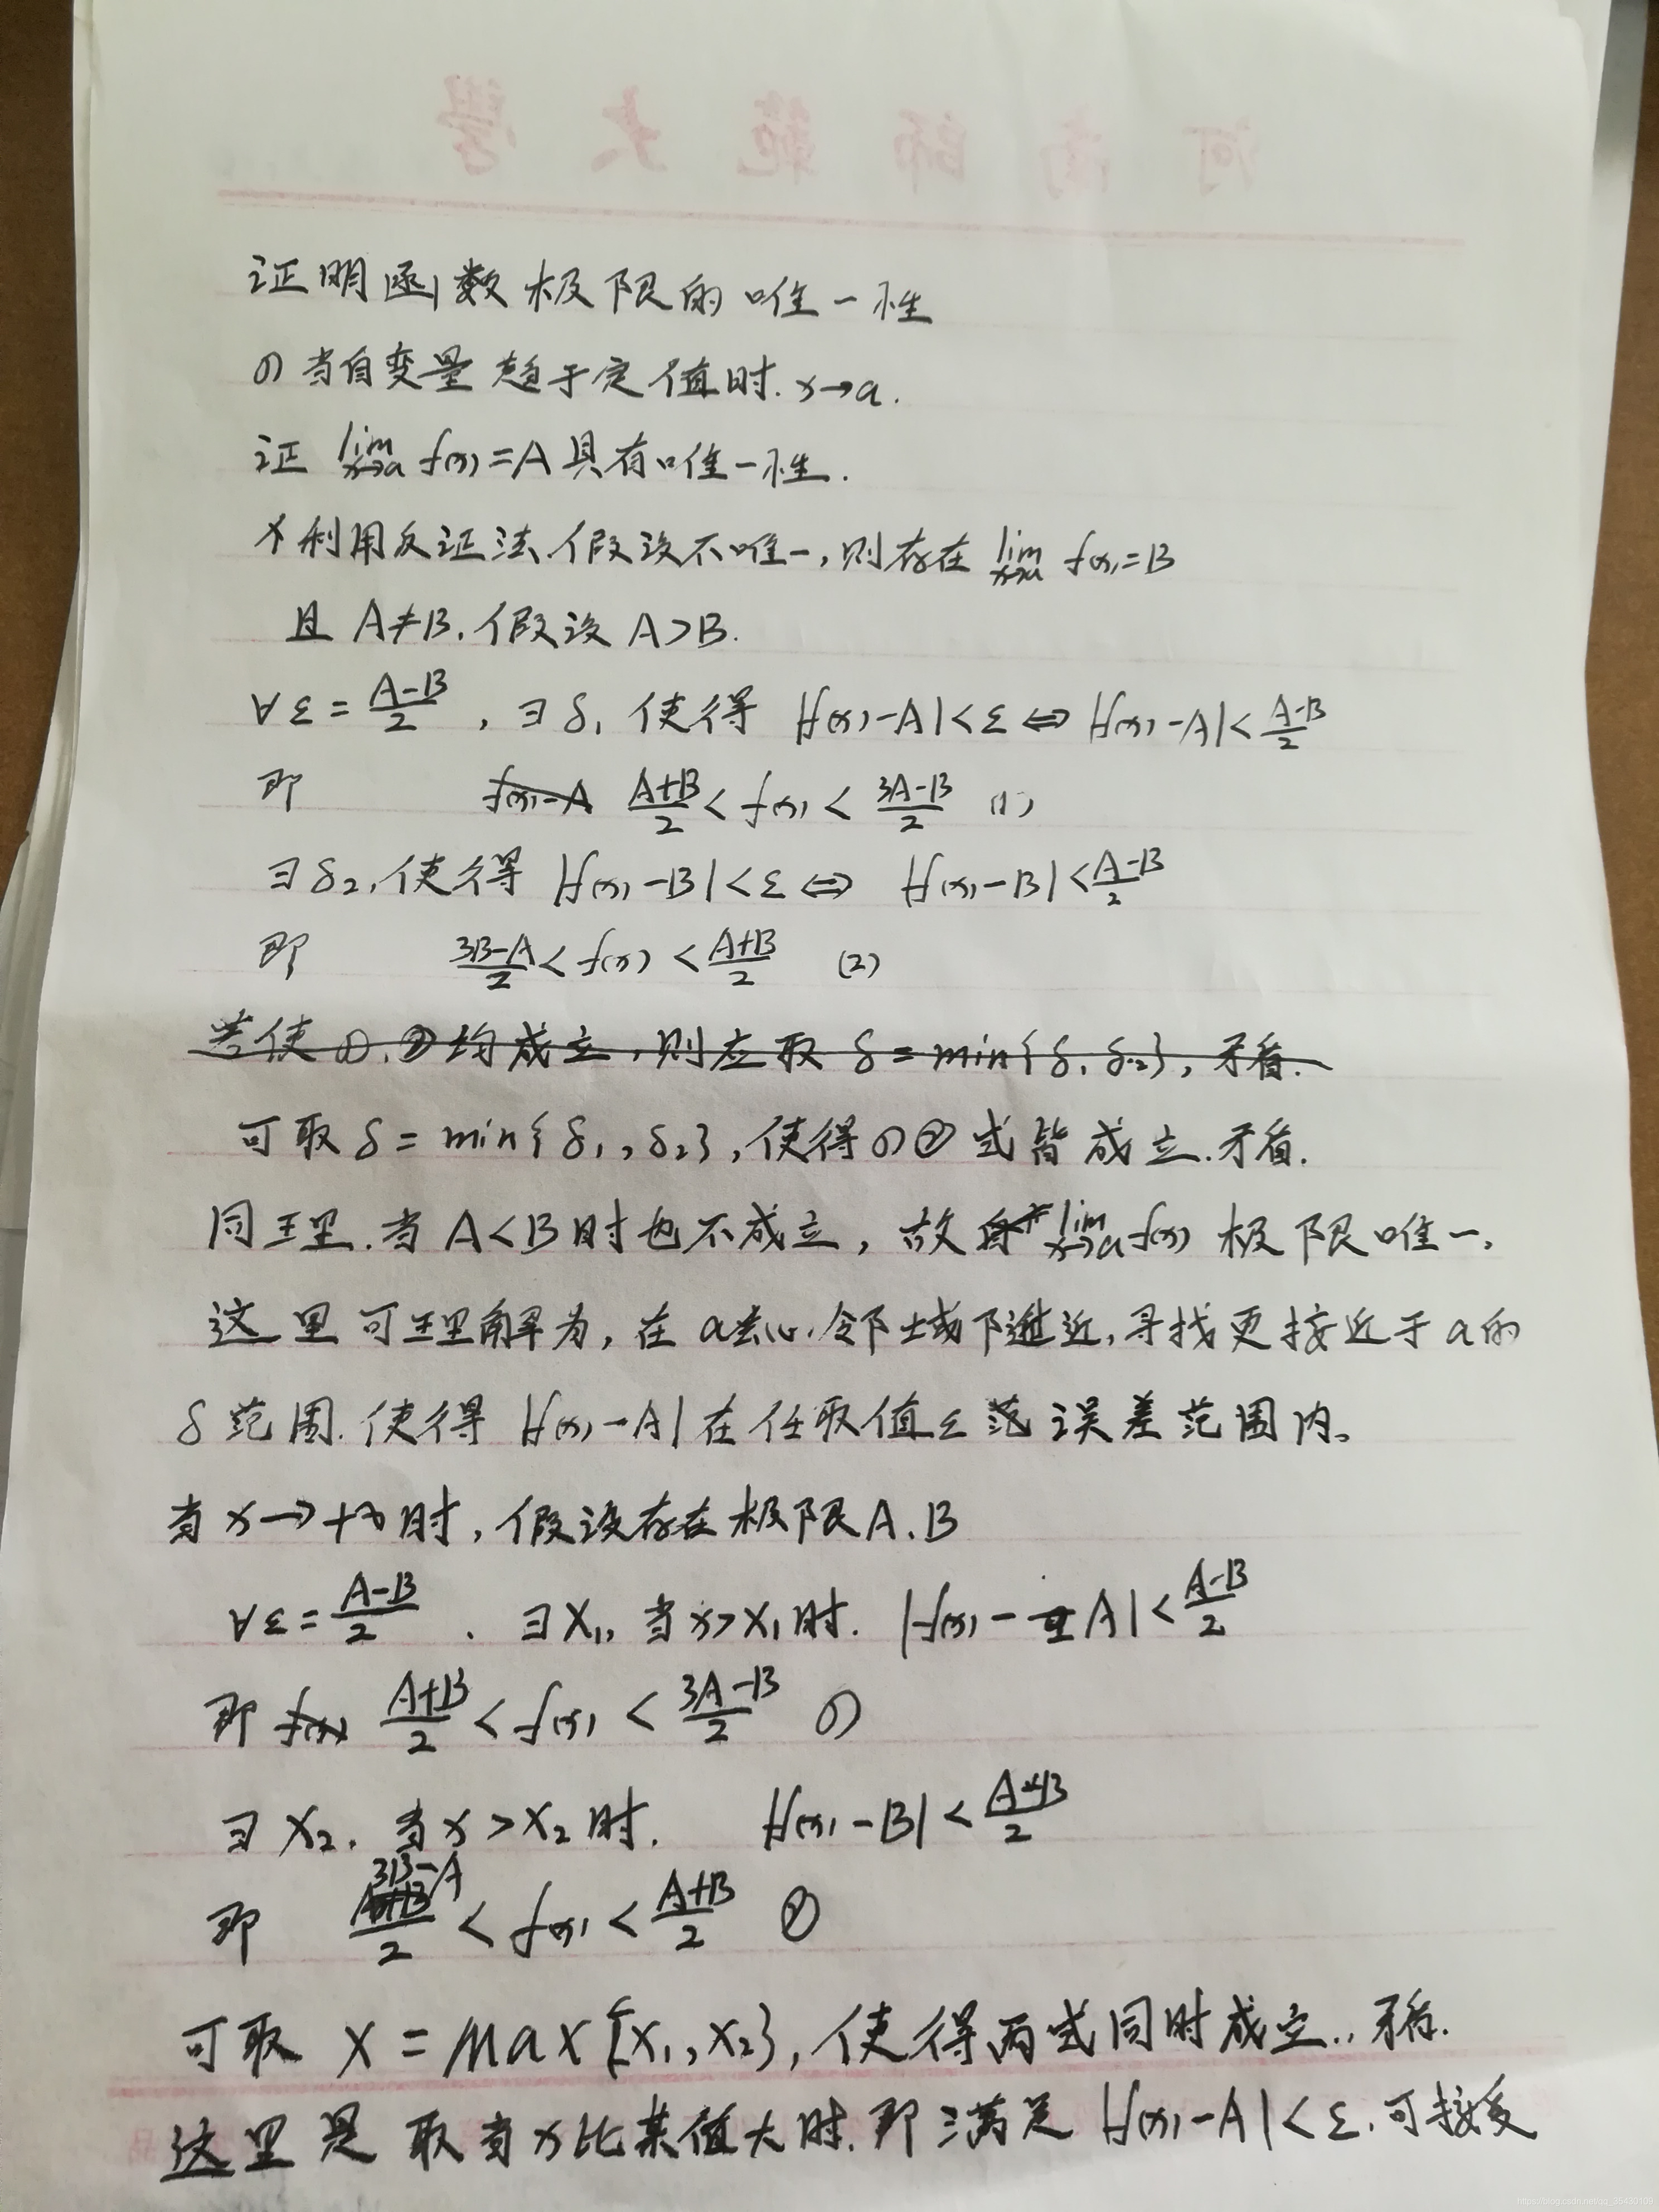 河南師範大學
证明函数极限的唯一性
(1) 当自变量趋于定值时. x→a.
证 lim x→a f(x)=A 具有唯一性.
利用反证法.假设不唯一,则存在 lim x→a f(x)=B
且 A≠B.假设 A>B.
∀ε=(A-B)/2 , ∃δ₁ 使得 |f(x)-A|<ε ⇔ |f(x)-A|<(A-B)/2
即 f(x)-A (A+B)/2 < f(x) < (3A-B)/2 (1)
∃δ₂,使得 |f(x)-B|<ε ⇔ |f(x)-B|<(A-B)/2
即 (3B-A)/2 < f(x) < (A+B)/2 (2)
若使①.②均成立,则应取 δ=min{δ₁ δ₂},矛盾.
可取 δ=min{δ₁,δ₂},使得(1)②式皆成立.矛盾.
同理.当 A<B 时也不成立,故 lim x→a f(x) 极限唯一.
这里可理解为,在 a去心邻域下逼近,寻找更接近于 a的
δ范围.使得 |f(x)-A| 在任取值ε范误差范围内。
当 x→+∞时,假设存在极限A.B
∀ε=(A-B)/2 . ∃X₁, 当x>X₁时. |f(x)-A|<(A-B)/2
即 f(x) (A+B)/2 < f(x) < (3A-B)/2 (1)
∃X₂. 当x>X₂时. |f(x)-B|<(A-B)/2
即 (3B-A)/2 < f(x) < (A+B)/2 ②
可取 X=Max{X₁,X₂},使得两式同时成立..矛盾.
这里是取当x比某值大时.即满足 |f(x)-A|<ε.可接受